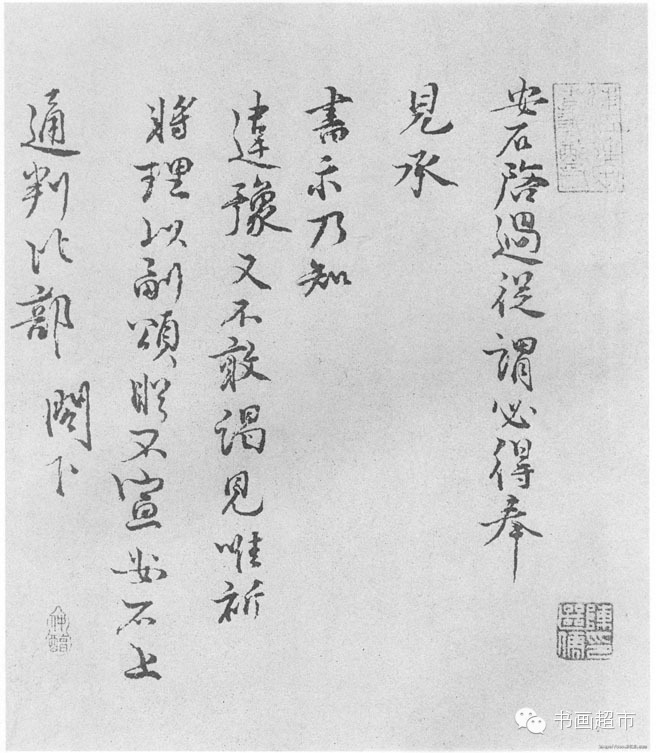 安石啓過從謂必得奉
見承
書示乃知
違豫又不敢謁見唯祈
將理以副頌不宣安石上
通判比部 閣下
书画超市